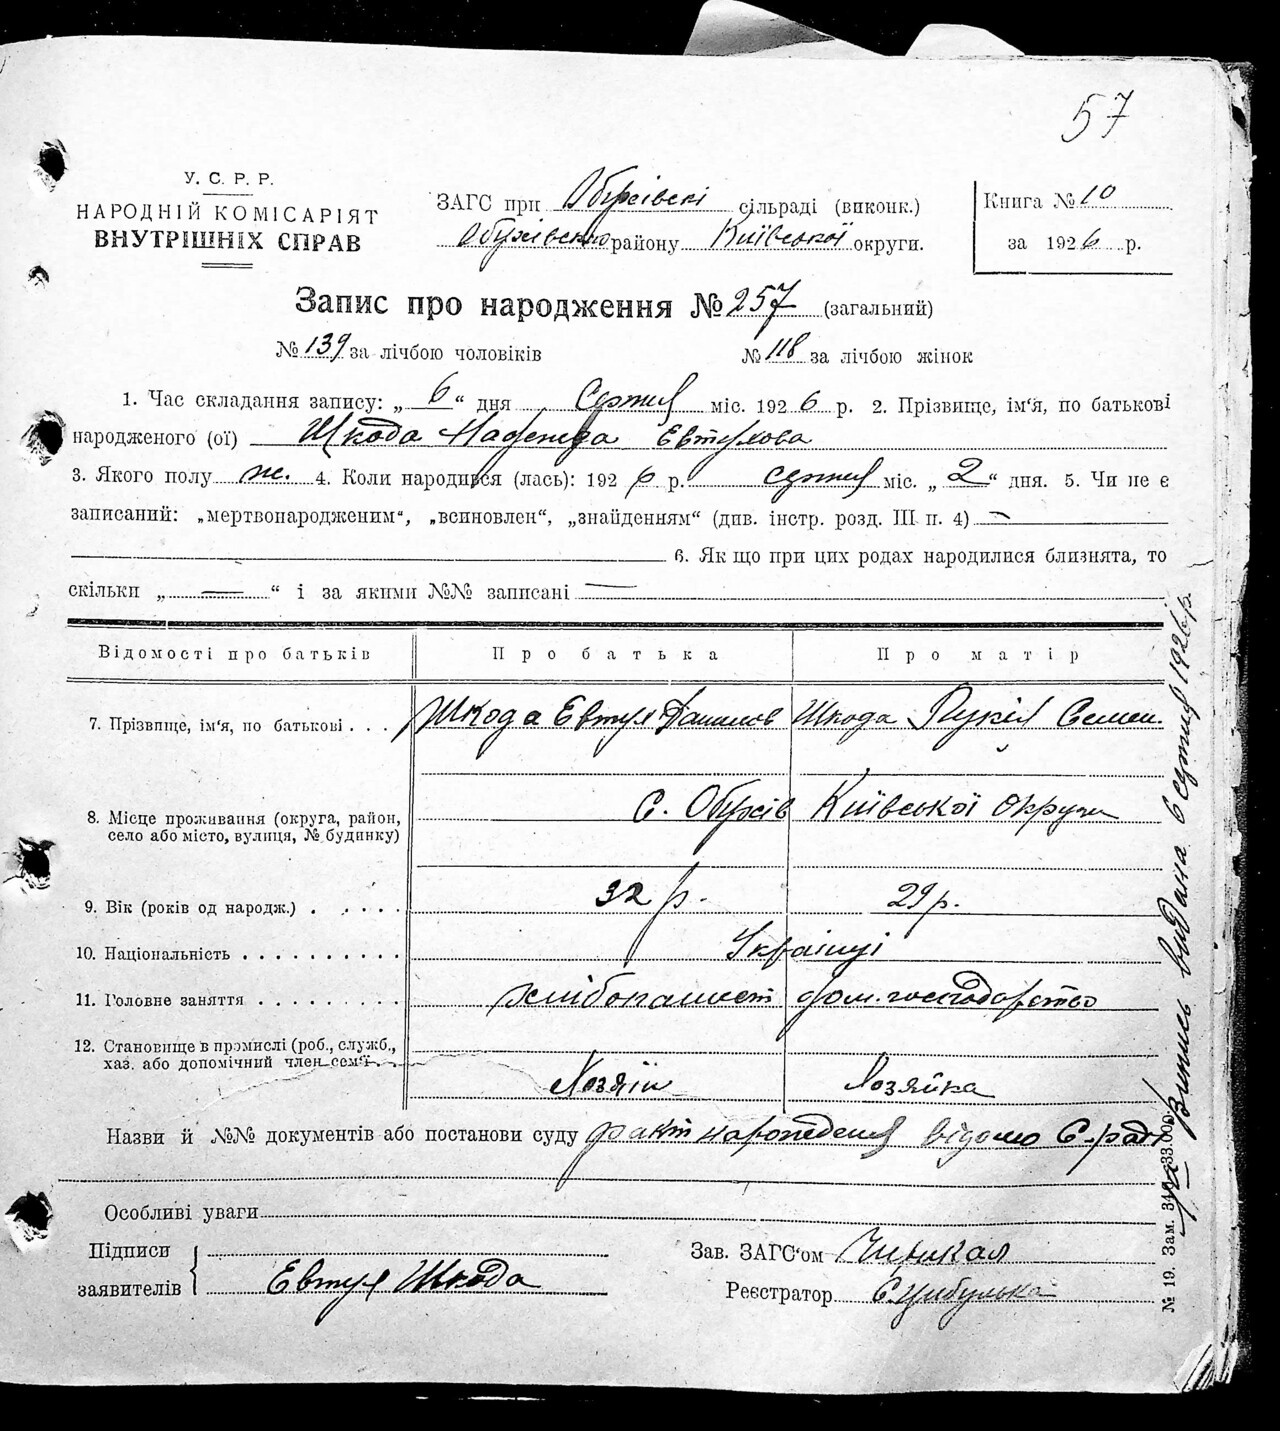 57
У. С. Р. Р.
НАРОДНІЙ КОМІСАРІЯТ
ВНУТРІШНІХ СПРАВ
ЗАГС при Обухівскі сільраді (виконк.)
Обухівсько району Київської округи.
Книга № 10
за 1926 р.
Запис про народження № 257 (загальний)
№ 139 за лічбою чоловіків № 118 за лічбою жінок
1. Час складання запису: „ 6 “ дня Серпня міс. 1926 р. 2. Прізвище, ім'я, по батькові
народженого (ої) Шкода Надежда Евтухова
3. Якого полу ж. 4. Коли народився (лась): 1926 р. серпня міс. „ 2 “ дня. 5. Чи не є
записаний: „мертвонародженим“, „всиновлен“, „знайденням“ (див. інстр. розд. III п. 4) —
6. Як що при цих родах народилися близнята, то
скільки „ — “ і за якими №№ записані —
Відомості про батьків Про батька Про матір
7. Прізвище, ім'я, по батькові . . . Шкода Евтух Данилов Шкода Лукія Семен.
8. Місце проживання (округа, район, село або місто, вулиця, № будинку) С. Обухів Київської округи
9. Вік (років од народж.) . . . . . 32 р. 29 р.
10. Національність . . . . . . . . . . Українці
11. Головне заняття . . . . . . . . . хлібопашест дом. господарство
12. Становище в промислі (роб., служб., хаз. або допомічний член сем'ї . . Хозяїн Хозяйка
Назви й №№ документів або постанови суду факт народження відомо С.-раді
Особливі уваги
Підписи
заявителів Евтух Шкода
Зав. ЗАГС'ом
Реєстратор Є. Цибулька
Випись видана 6 серпня 1926 р.
№ 19. Зам. 33.000.